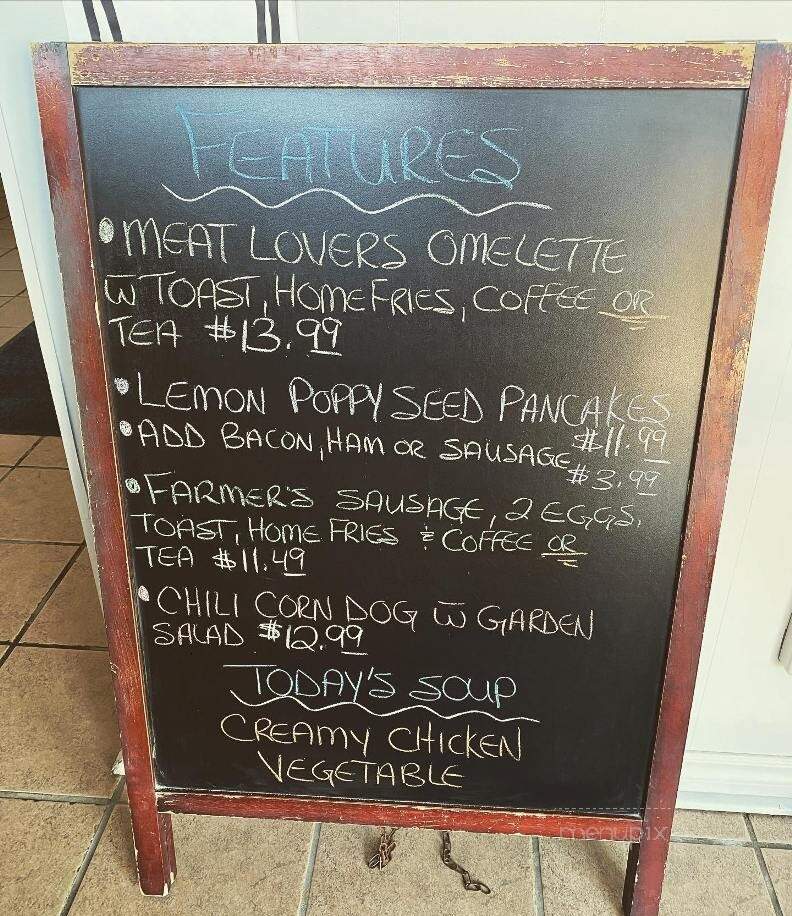 FEATURES
• MEAT LOVERS OMELETTE
w̅ TOAST, HOMEFRIES, COFFEE OR
TEA $13.99
• LEMON POPPYSEED PANCAKES
$11.99
• ADD BACON, HAM OR SAUSAGE
$3.99
• FARMER'S SAUSAGE, 2 EGGS,
TOAST, HOME FRIES & COFFEE OR
TEA $11.49
• CHILI CORN DOG w̅ GARDEN
SALAD $12.99
TODAY'S SOUP
CREAMY CHICKEN
VEGETABLE
menupix